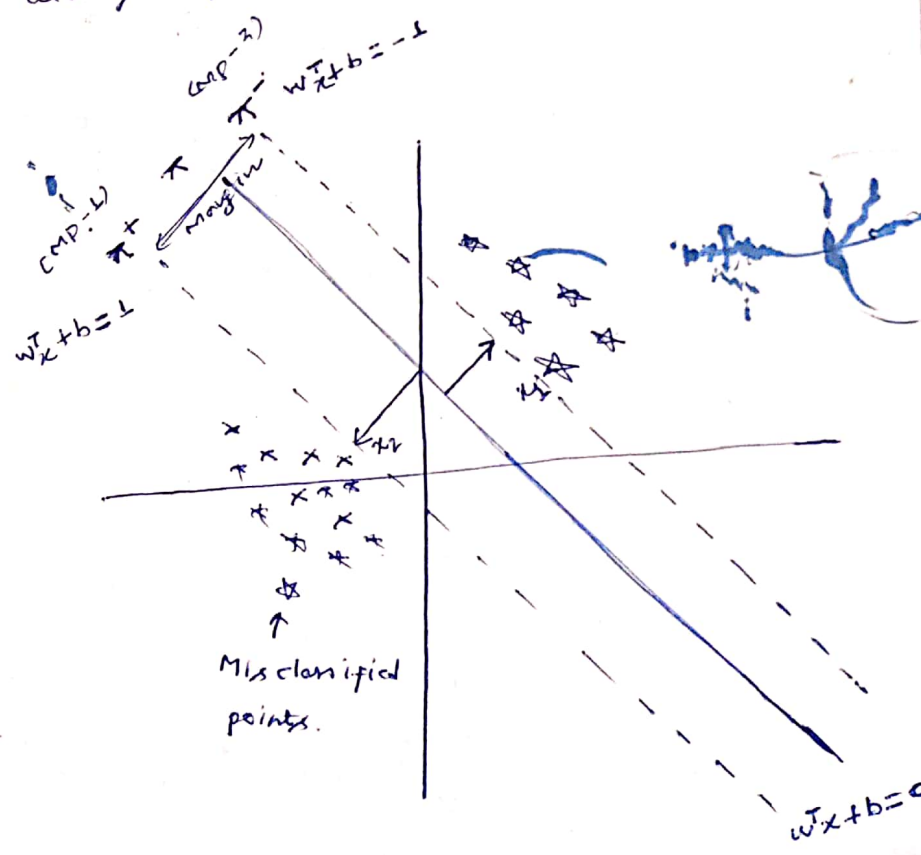 (MP-2)
π⁻ wᵀx+b=-1
π
margin
(MP-1)
π⁺
wᵀx+b=1
x1
x2
Misclassified
points.
wᵀx+b=0